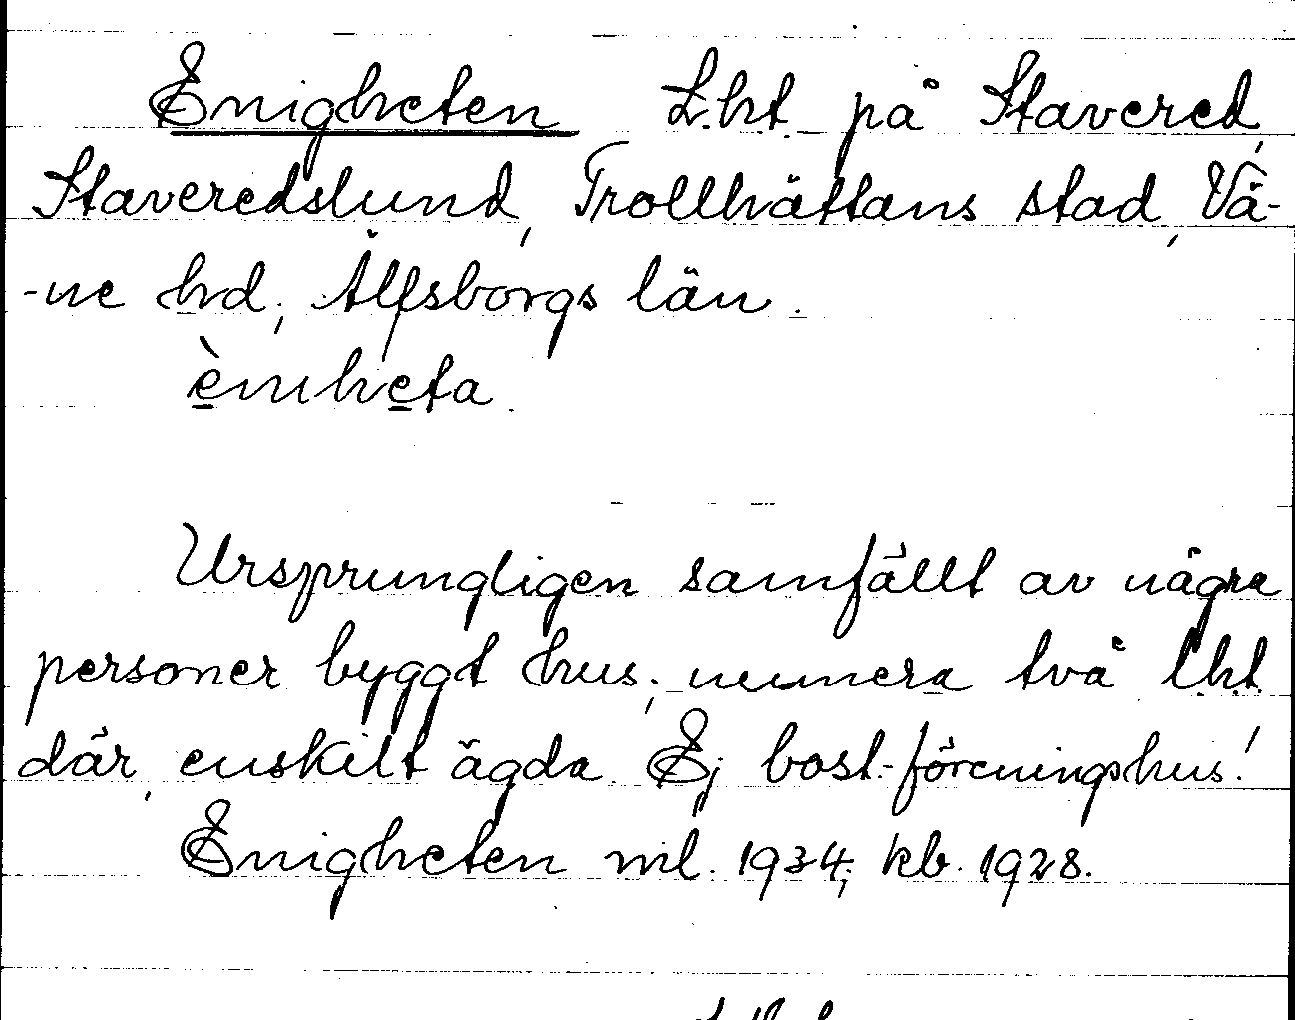 Enigheten L.ht. på Stavered,
Staveredslund, Trollhättans stad, Vä-
-ne hd; Älfsborgs län.
èniheta.
Ursprungligen samfällt av några
personer byggt hus; numera två l.ht.
där, enskilt ägda. Ej bost.-föreningshus!
Enigheten ml. 1934; kb. 1928.